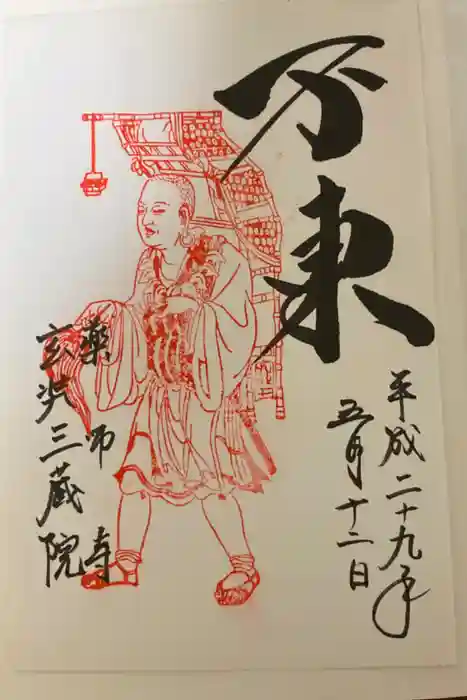 不東
平成二十九年
五月十二日
薬師寺
玄奘三蔵院